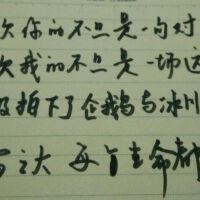 欠你的不只是一句对
欠我的不只是一场这
及拍下了企鹅与冰川
之大 每个生命都